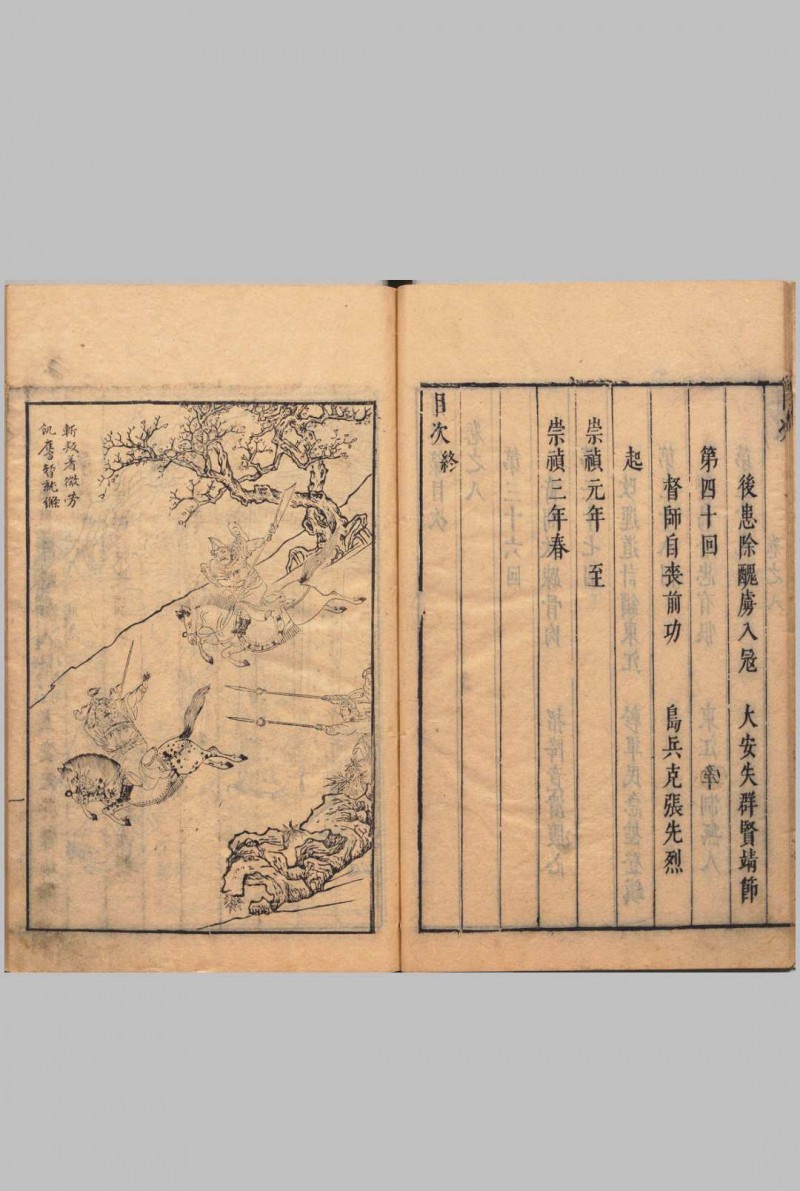 後患除醜虜入寇　大安失群賢靖節
第四十回
督師自喪前功　島兵克張先烈
起
崇禎元年　至
崇禎三年春
目次終
斬叛着微勞
飢鷹暫就縧